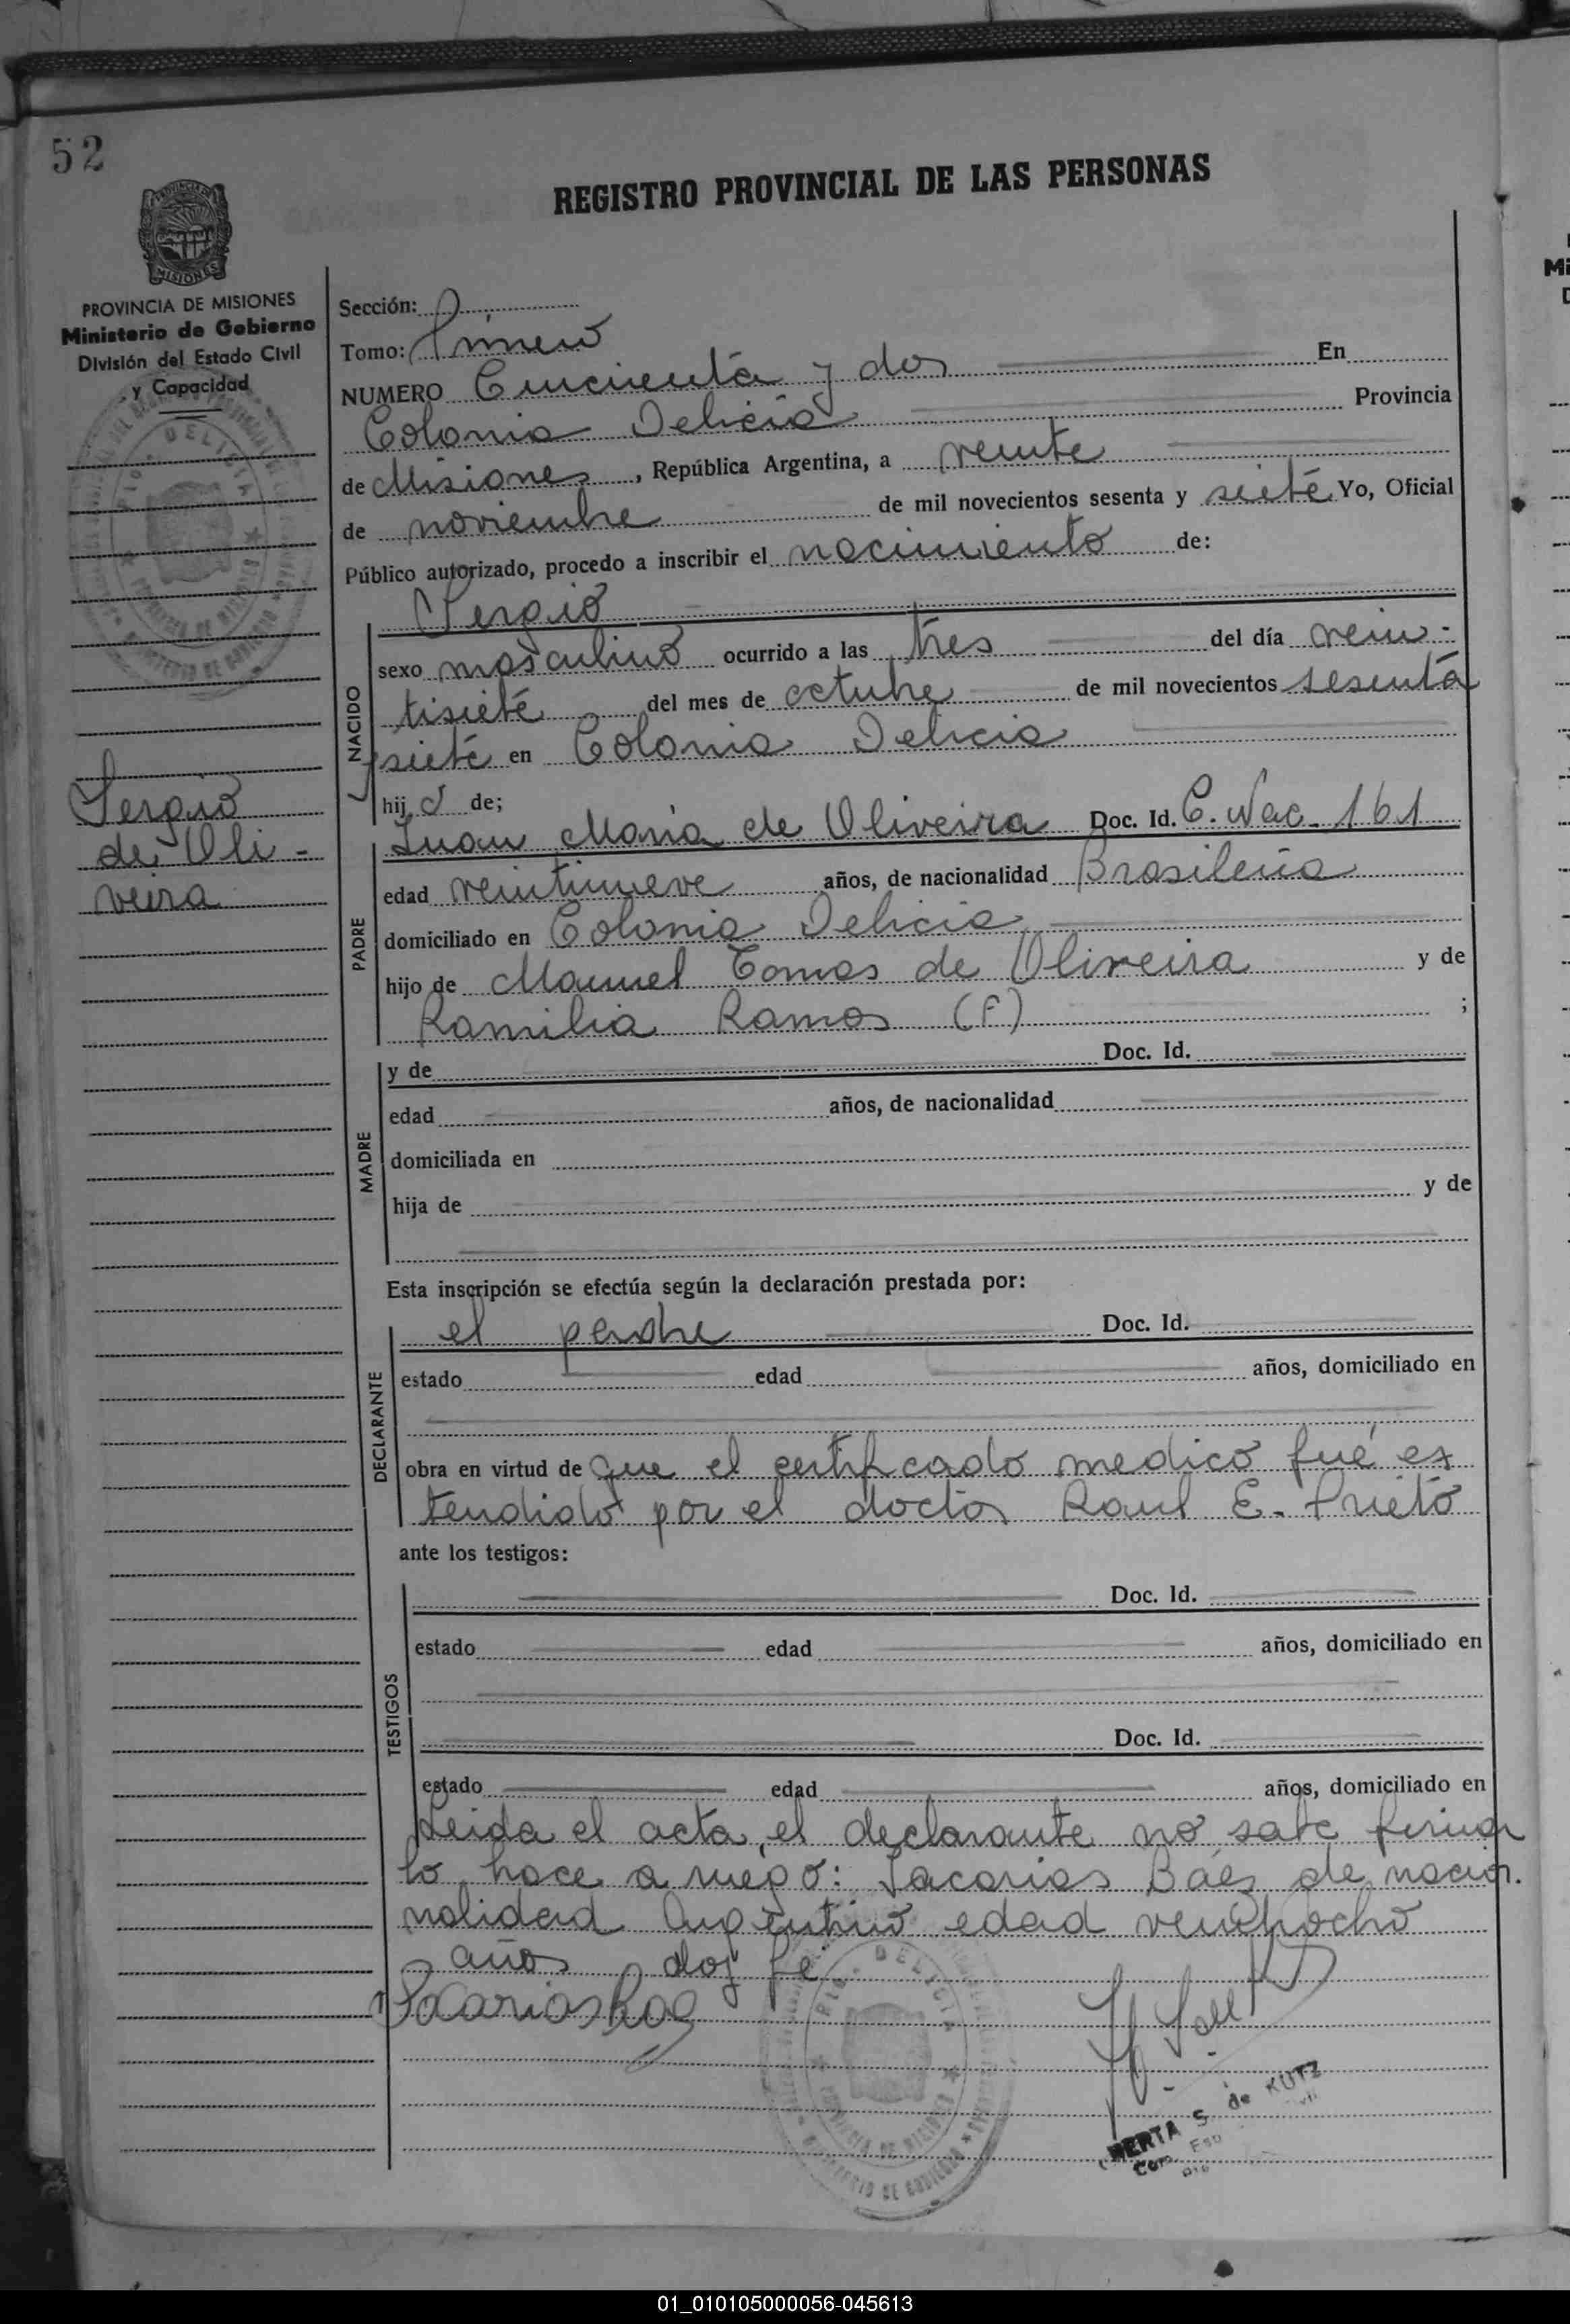 52
REGISTRO PROVINCIAL DE LAS PERSONAS
MISIONES
PROVINCIA DE MISIONES
Ministerio de Gobierno
División del Estado Civil
y Capacidad
Sección:
Tomo: Primero
NUMERO Cincuenta y dos En
Colonia Delicia Provincia
de Misiones, República Argentina, a veinte
de noviembre de mil novecientos sesenta y siete Yo, Oficial
Público autorizado, procedo a inscribir el nacimiento de:
Sergio
NACIDO
sexo masculino ocurrido a las tres del día vein-
tisiete del mes de octubre de mil novecientos sesenta
y siete en Colonia Delicia
hijo de;
Sergio
de Oli-
veira
PADRE
Juan Maria de Oliveira Doc. Id. C. Nac. 161
edad veintinueve años, de nacionalidad Brasileña
domiciliado en Colonia Delicia
hijo de Manuel Tomas de Oliveira y de
Ramilia Ramos (F) ;
MADRE
y de Doc. Id.
edad años, de nacionalidad
domiciliada en
hija de y de
Esta inscripción se efectúa según la declaración prestada por:
DECLARANTE
el padre Doc. Id.
estado edad años, domiciliado en
obra en virtud de que el certificado medico fué ex
tendido por el doctor Raul E. Prieto
ante los testigos:
TESTIGOS
Doc. Id.
estado edad años, domiciliado en
Doc. Id.
estado edad años, domiciliado en
Leida el acta, el declarante no sabe firmar
lo hace a ruego: Sacarias Báez de nacio-
nalidad Argentino edad veintiocho
años doy fe
DELICIA
BERTA S. de KUTZ
01_010105000056-045613